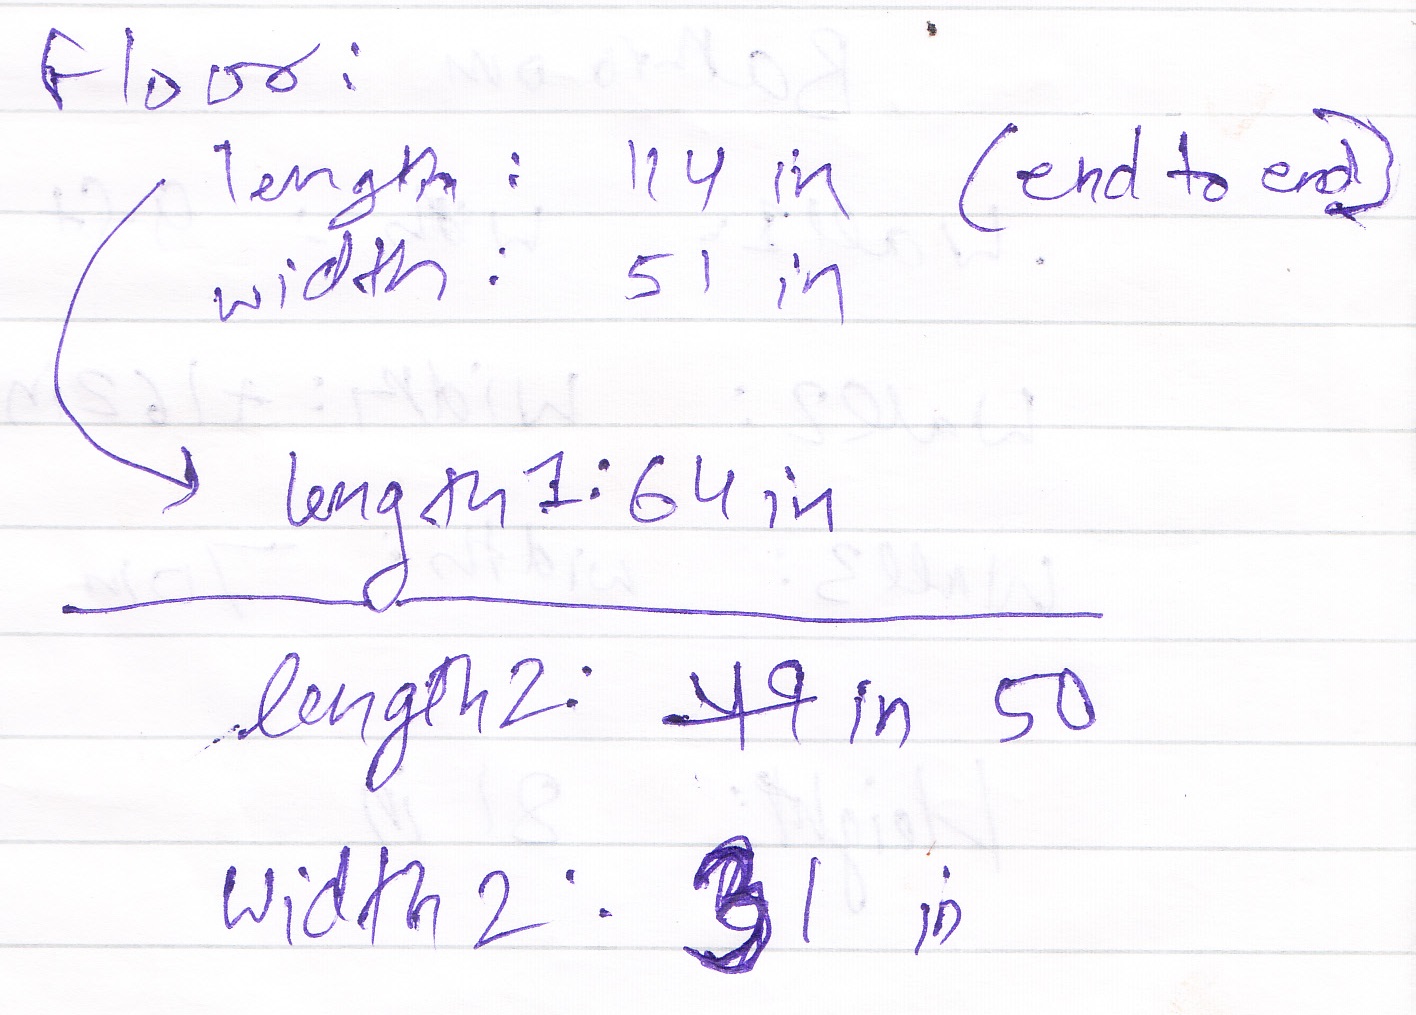 Floor:
length: 114 in (end to end)
width: 51 in
length 1: 64 in
length 2: 49 in 50
width 2: 31 in